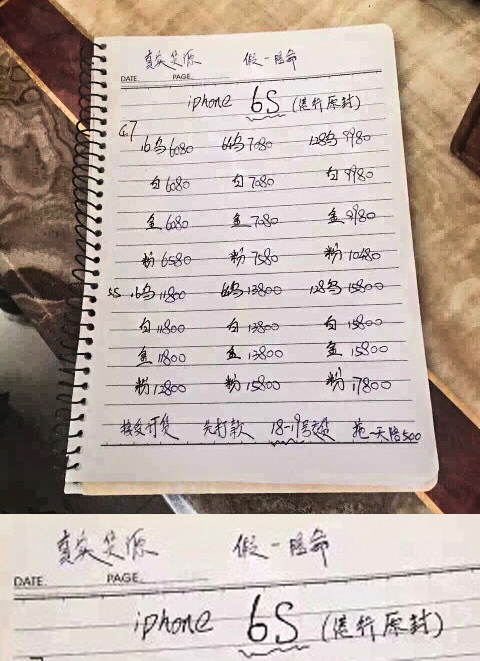 真实货源 假一赔命
DATE. PAGE.
iphone 6S (港行原封)
4.7 16乌6080 64乌7080 128乌9980
白6080 白7080 白9980
金6080 金7080 金9980
粉6580 粉7580 粉10480
5.5 16乌11800 64乌13800 128乌15800
白11800 白13800 白15800
金11800 金13800 金15800
粉12800 粉15800 粉17800
接受订货 先打款 18-19号交货 拖一天赔500
真实货源 假一赔命
DATE. PAGE.
iphone 6S (港行原封)